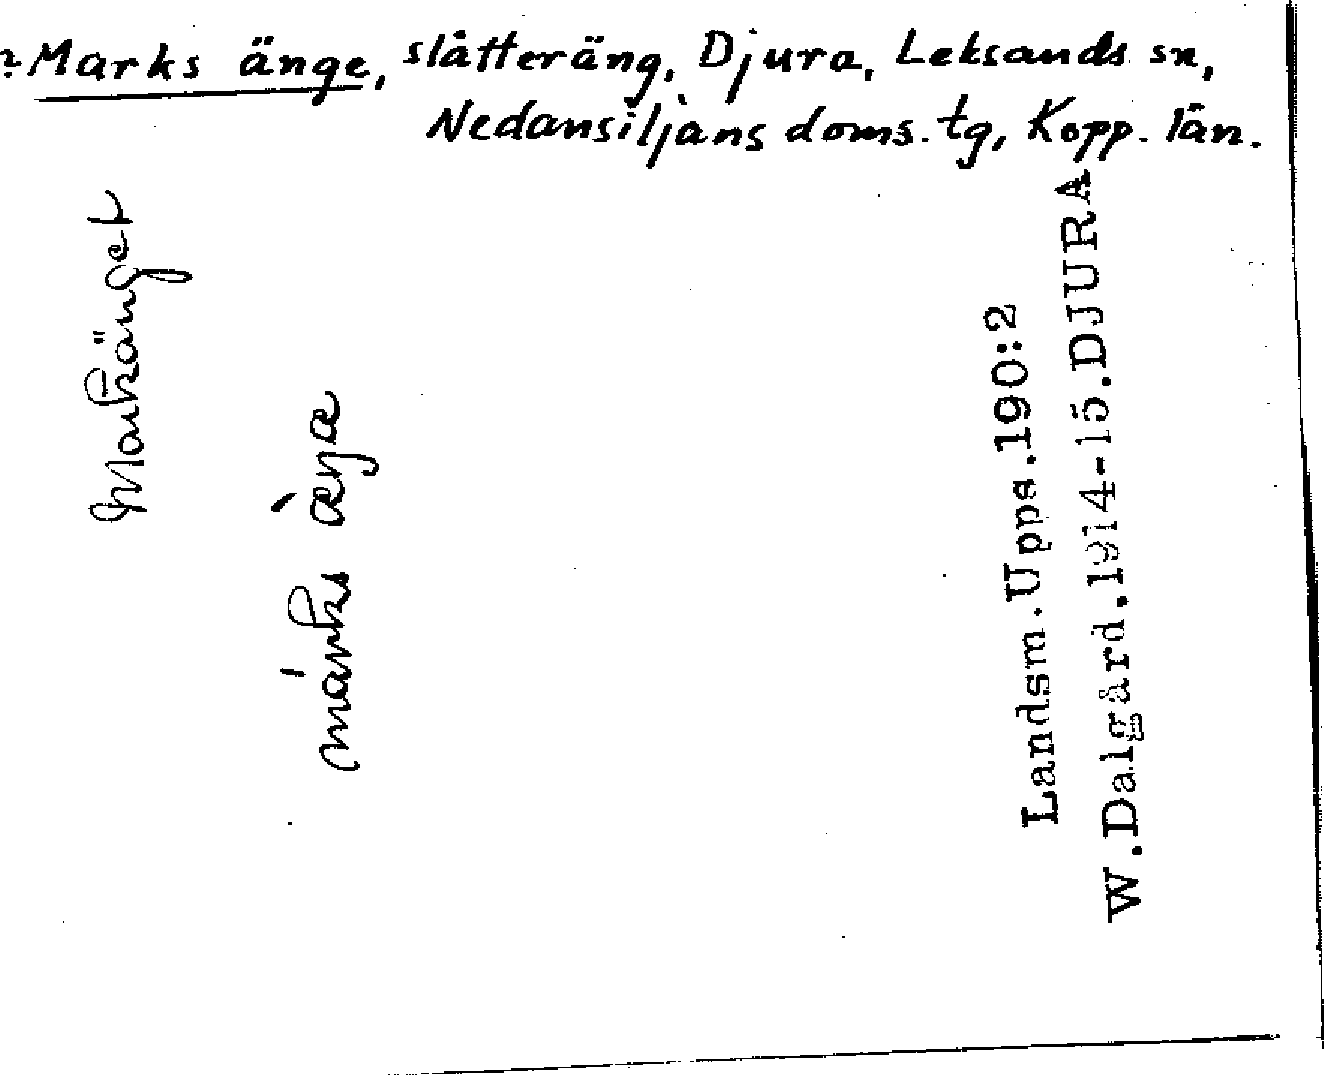 Marks änge, slåtteräng, Djura, Leksands sn,
Nedansiljans doms. tg, Kopp. län.
Markänget
Landsm.Upps.190:2
W.Dalgård.1914-15.DJURA